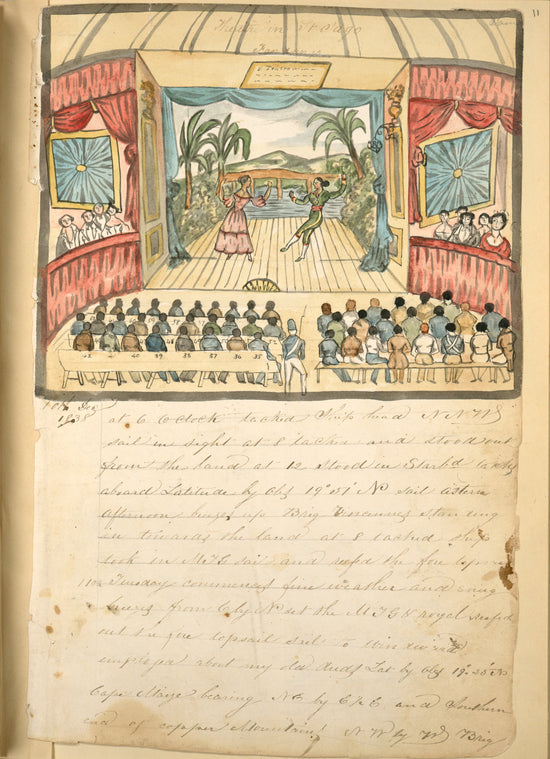 11
Theatre in St Iago
Teatro
43 40 39 37 36 35
10th Dec
1838 at 6 O Clock tacked Ship head N N W
sail in sight at 8 tacked and stood out
from the land at 12 stood in Starbd tacks
aboard Latitude by Obs 19° 51' N sail astern
afternoon Brig Vincennes standing
in towards the land at 8 tacked ship
took in M T G sail and reefed the fore topsail
11th Tuesday commences fine weather and
from E by N set the M T G & royal reefs
out the fore topsail sail to windward
employed about my old duds Lat by Obs 19° 50' N
Cape Maize bearing N E by E ½ E and Southern
end of copper Mountains N W by W Brig